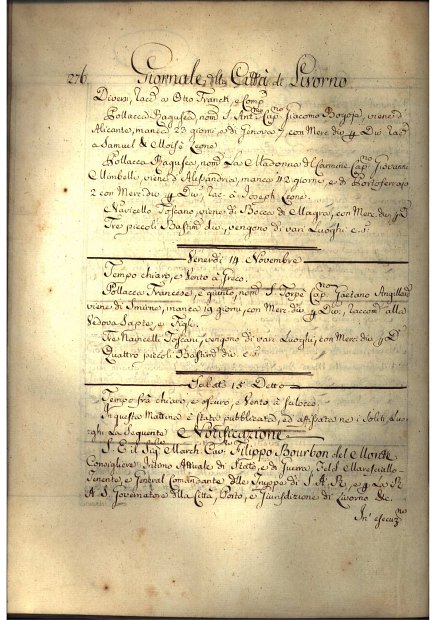 276. Giornale della Città di Livorno
Diversi, racc.ti a Otto Franck, e Comp.
Pollacca Ragusea, nom. S. Ant.o Cap.no Giacomo Bogoja, viene d'
Alicante, manca 22 giorni, e di Genova 7, con Merc. div. p Div. rac.ti
a Samuel & Moisè Leone
Pollacca Ragusea, nom. La Madonna del Carmine Cap.no Giovanni
Mimbelli, viene d'Alessandria, manca 42 giorni, e di Portoferraio
2 con Merc. div. p Div. rac. à Joseph Leone.
Navicello Toscano, viene di Bocca di Magra, con Merc. div. p D.
Tre piccoli Bastim. div. vengono di vari Luoghi c. s.
Venerdì 14 Novembre
Tempo chiaro, e Vento à Greco.
Pollacca Francese, è giunto, nom. S. Torpè Cap. Gaetano
viene di Smirne, manca 19 giorni, con Merc. div. p Div., raccom. alla
Vedova e Figli.
Tre Navicelli Toscani, vengono di vari Luoghi, con Merc. div. p D.
Quattro piccoli Bastim. div. c. s.
Sabato 15 Detto
Tempo frà chiaro, e oscuro, e Vento, à
In questa Mattina è stato pubblicata, ed affissata ne i Soliti Luo-
ghi La Seguente Notificazione
S. E. il Sig. March. Cav. Filippo Bourbon del Monte
Consigliere Intimo Attuale di Stato, e di Guerra, Feld Maresciallo
Tenente, e General Comandante delle Truppe di S. A. R., e p La R.
A. S. Governatore della Città, Porto, e Giurisdizione di Livorno &c.
In esecuz.ne